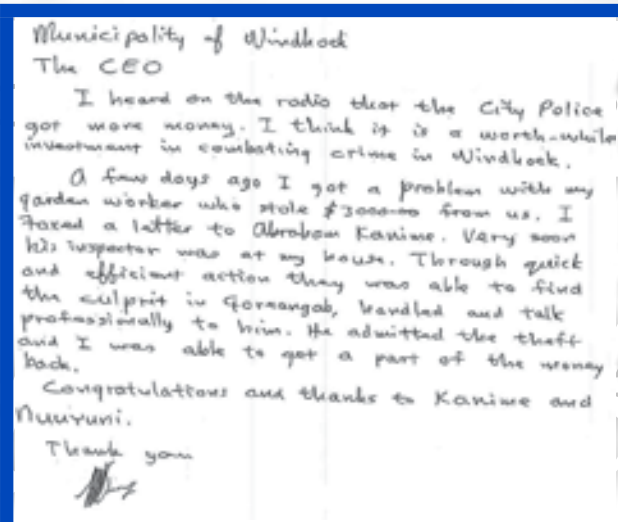 Municipality of Windhoek
The CEO
I heard on the radio that the City Police
got more money. I think it is a worth-while
investment in combating crime in Windhoek.
A few days ago I got a problem with my
garden worker who stole $3000.00 from us. I
faxed a letter to Abraham Kanime. Very soon
his inspector was at my house. Through quick
and efficient action they was able to find
the culprit in Goreangab, handled and talk
professionally to him. He admitted the theft
and I was able to get a part of the money
back.
Congratulations and thanks to Kanime and
Thank you